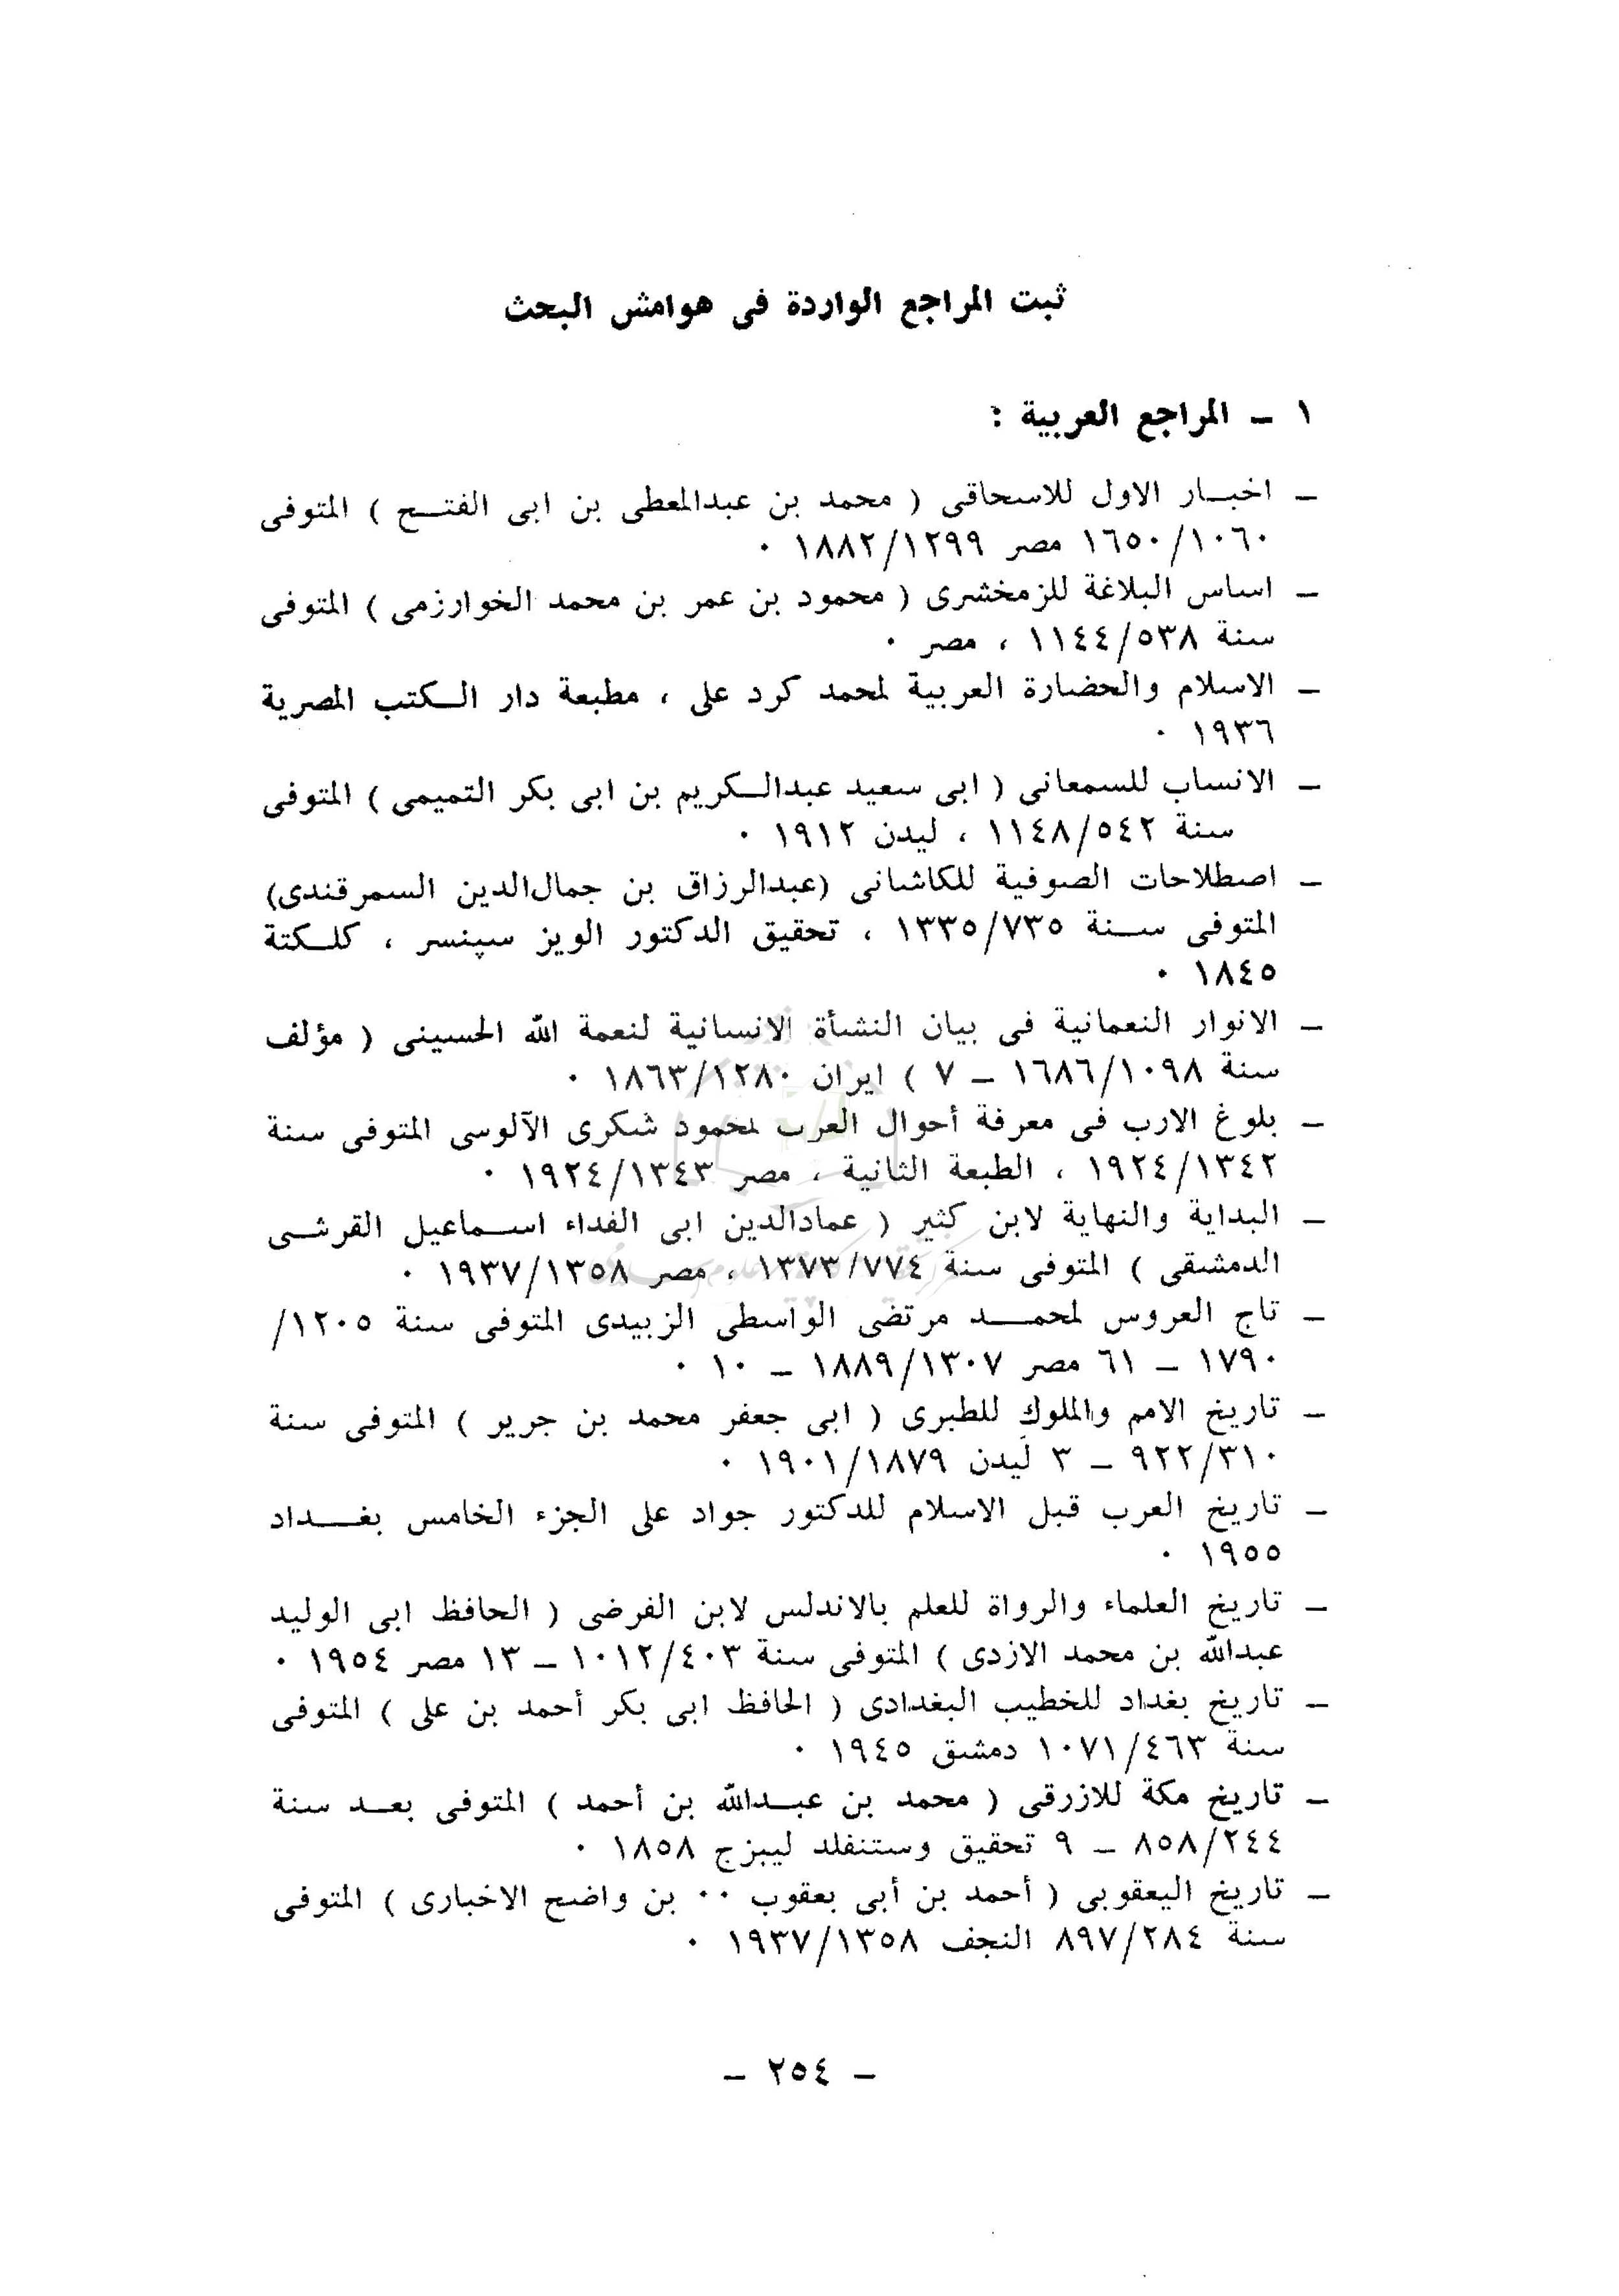 ثبت المراجع الواردة فى هوامش البحث
١ ـ المراجع العربية :
ـ اخبـار الاول للاسحاقى ( محمد بن عبدالمعطى بن ابى الفتـح ) المتوفى
١٦٥٠/١٠٦٠ مصر ١٨٨٢/١٢٩٩ ٠
ـ اساس البلاغة للزمخشرى ( محمود بن عمر بن محمد الخوارزمى ) المتوفى
سنة ١١٤٤/٥٣٨ ، مصر ٠
ـ الاسلام والحضارة العربية لمحمد كرد على ، مطبعة دار الـكتب المصرية
١٩٣٦ ٠
ـ الانساب للسمعانى ( ابى سعيد عبدالـكريم بن ابى بكر التميمى ) المتوفى
سنة ١١٤٨/٥٤٢ ، ليدن ١٩١٢ ٠
ـ اصطلاحات الصوفية للكاشانى (عبدالرزاق بن جمال‌الدين السمرقندى)
المتوفى سـنة ١٣٣٥/٧٣٥ ، تحقيق الدكتور الويز سپنسر ، كلـكتة
١٨٤٥ ٠
ـ الانوار النعمانية فى بيان النشأة الانسانية لنعمة الله الحسينى ( مؤلف
سنة ١٦٨٦/١٠٩٨ ـ ٧ ) ايران ١٨٦٣/١٢٨٠ ٠
ـ بلوغ الارب فى معرفة أحوال العرب لمحمود شكرى الآلوسى المتوفى سنة
١٩٢٤/١٣٤٢ ، الطبعة الثانية ، مصر ١٩٢٤/١٣٤٣ ٠
ـ البداية والنهاية لابن كثير ( عمادالدين ابى الفداء اسـماعيل القرشـى
الدمشقى ) المتوفى سنة ١٣٧٣/٧٧٤ ، مصر ١٩٣٧/١٣٥٨ ٠
ـ تاج العروس لمحمـــد مرتضى الواسطى الزبيدى المتوفى سنة ١٢٠٥/
١٧٩٠ ـ ٦١ مصر ١٨٨٩/١٣٠٧ ـ ١٠ ٠
ـ تاريخ الامم والملوك للطبرى ( ابى جعفر محمد بن جرير ) المتوفى سنة
٩٢٢/٣١٠ ـ ٣ لَيدن ١٩٠١/١٨٧٩ ٠
ـ تاريخ العرب قبل الاسلام للدكتور جواد على الجزء الخامس بغـــداد
١٩٥٥ ٠
ـ تاريخ العلماء والرواة للعلم بالاندلس لابن الفرضى ( الحافظ ابى الوليد
عبدالله بن محمد الازدى ) المتوفى سنة ١٠١٢/٤٠٣ ـ ١٣ مصر ١٩٥٤ ٠
ـ تاريخ بغداد للخطيب البغدادى ( الحافظ ابى بكر أحمد بن على ) المتوفى
سنة ١٠٧١/٤٦٣ دمشق ١٩٤٥ ٠
ـ تاريخ مكة للازرقى ( محمد بن عبـدالله بن أحمد ) المتوفى بعـد سنة
٨٥٨/٢٤٤ ـ ٩ تحقيق وستنفلد ليبزج ١٨٥٨ ٠
ـ تاريخ اليعقوبى ( أحمد بن أبى بعقوب ٠٠ بن واضح الاخبارى ) المتوفى
سنة ٨٩٧/٢٨٤ النجف ١٩٣٧/١٣٥٨ ٠
ـ ٢٥٤ ـ